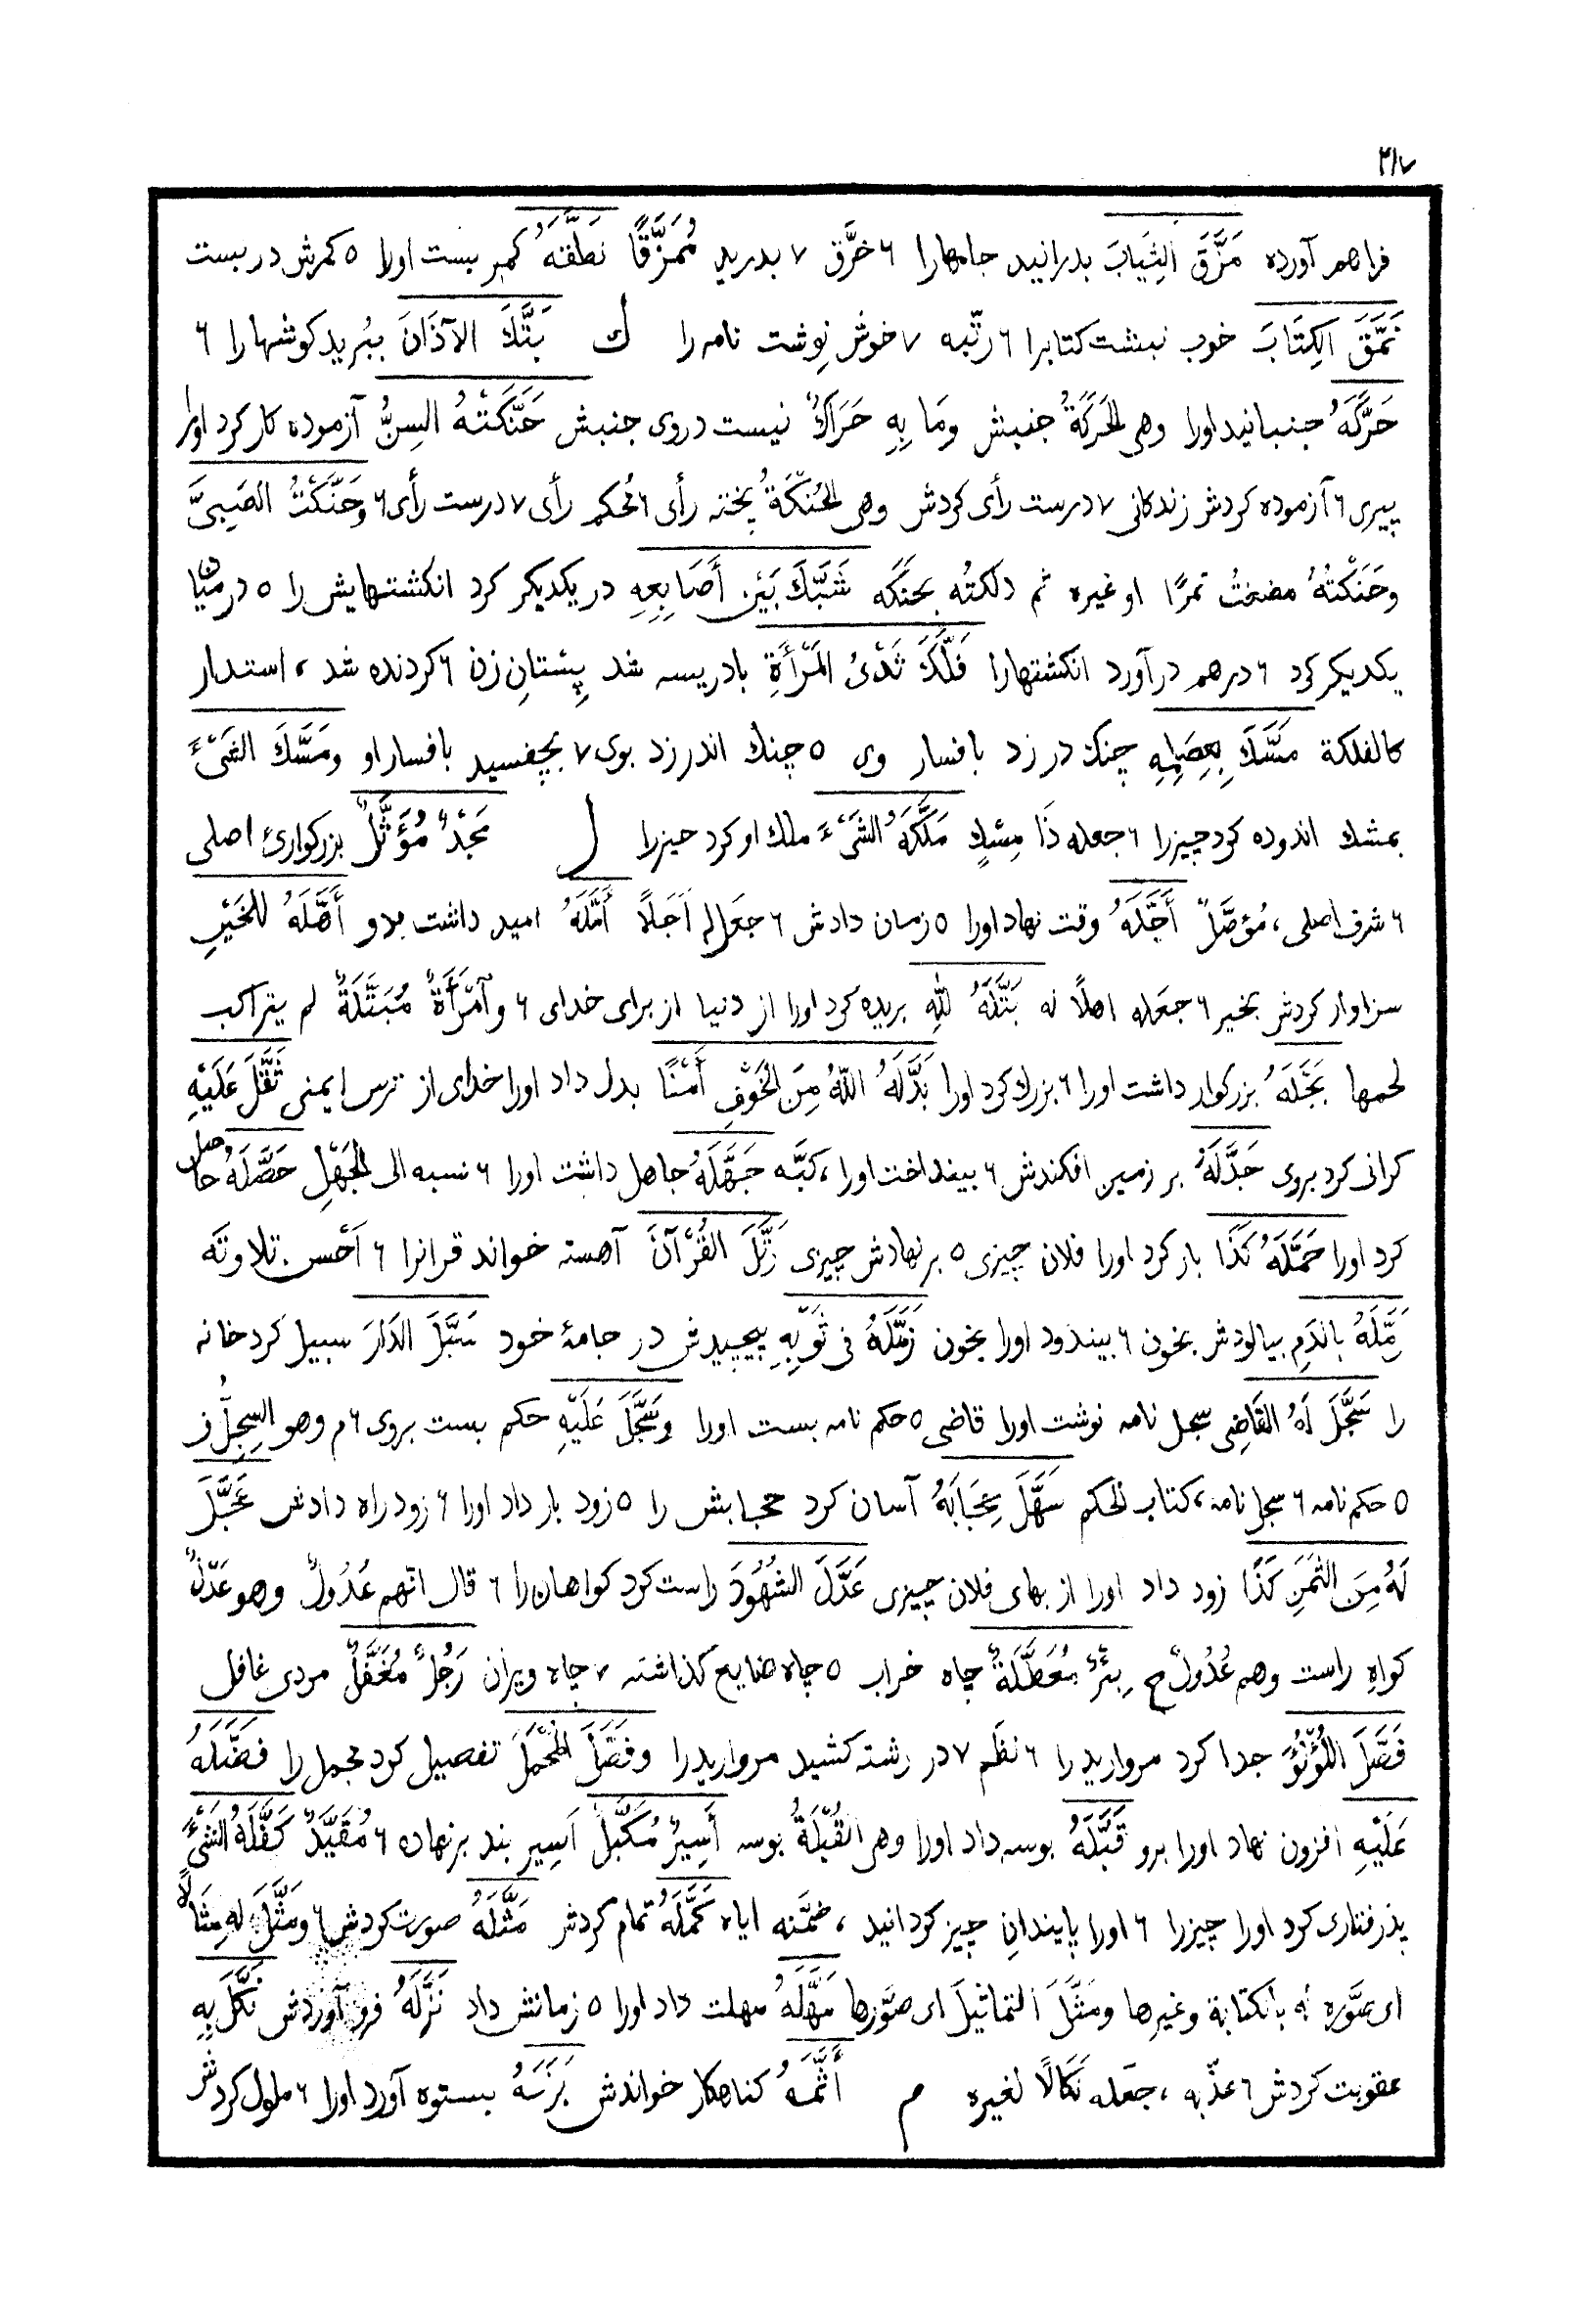 ۲۱۷
فراهم آورده مَزَّقَ الثِيَابَ بدرانید جامهارا ۶ خرَّق ۷ بدرید مُمَزَّقًا نَطَّقَهُ کمر بست اورا ۵ کمرش در بست
نَمَّقَ الكِتَابَ خوب نبشت کتابرا ۶ رتّبه ۷ خوش نِوشت نامه را ك بَتَّكَ الآذَانَ ببُرید کوشهارا ۶
حَرَّكَهُ جنبانید اورا وهی الحَرَكَةُ جنبش وَمَا بِهِ حَرَاكٌ نیست دروی جنبش حَنَّكَتْهُ السِنُّ آزموده کار کرد اورا
پیری ۶ آزموده کردش زندکانی ۷ درست رأی کردش وهی الحُنْكَةُ پخته رأی ۶ مُحکم رأی ۷ درست رأی ۶ وحَنَّكْتُ الصَبِيَّ
وحَنَكْتُهُ مضغتُ تمرًا او غیره ثم دلکتُه بحَنَکَه شَبَّكَ بَيْنَ أَصَابِعِهِ در یکدیکر کرد انکشتهایش را ۵ درمیان
یکدیکر کرد ۶ درهم درآورد انکشتهارا فَلَّكَ ثَدْىُ المَرْأَةِ بادریسه شد پِستانِ زن ۶ کردنده شد ، استدار
کالفلکة مَسَّكَ بِعِصَامِهِ چنك در زد بافسار وی ۵ چنك اندر زد بوی ۷ بچفسید بافسار او ومَسَّكَ الشَىْءَ
بمشك اندوده کرد چیزرا ۶ جعله ذَا مِسْكٍ مَلَّكَهُ الشَىْءَ ملك او کرد چیزرا ل مَجْدٌ مُؤَثَّلٌ بزرکواریٔ اصلی
۶ شرف اصلی ، مُؤصَّلٌ أَجَّلَهُ وقت نهاد اورا ۵ زمان دادش ۶ جعَل له اَجَلًا أَمَّلَهُ امید داشت بدو أَهَّلَهُ لِلخَيْرِ
سزاوار کردش بخیر ۶ جعَله اهلًا له بَتَّلَهُ لِلّٰهِ بریده کرد اورا از دنیا از برای خدای ۶ وآمْرَأَةٌ مُبَتَّلَةٌ لم یتراکب
لحمها بَجَّلَهُ بزرکوار داشت اورا ۶ بزرك کرد اورا بَدَّلَهُ اللّٰهُ مِنَ الخَوْفِ أَمْنًا بدل داد اورا خدای از ترس ایمنی ثَقَّلَ عَلَيْهِ
کرانی کرد بروی جَدَّلَهُ بر زمین افکندش ۶ بینداخت اورا ، کبَّه جَهَّلَهُ جاهل داشت اورا ۶ نسبه الی الجَهْلِ حَصَّلَهُ حاصل
کرد اورا حَمَّلَهُ كَذَا بار کرد اورا فلان چیزی ۵ بر نهادش چیزی رَتَّلَ القُرْآنَ آهسته خواند قرانرا ۶ اَحْسن تلاوتَه
رَمَّلَهُ بالدَمِ بیالودش بخون ۶ بیندود اورا بخون زَمَّلَهُ فى ثَوْبِهِ پیچیدش در جامهٔ خود سَبَّلَ الدَارَ سبیل کرد خانه
را سَجَّلَ لَهُ القَاضِى سجل نامه نوشت اورا قاضی ۵ حکم نامه بست اورا وسَجَّلَ عَلَيْهِ حکم بست بروی ۶ م وهو السِجِلُّ ف
۵ حکم نامه ۶ سجل نامه ، کتاب الحکم سَهَّلَ حِجَابَهُ آسان کرد حجابش را ۵ زود بار داد اورا ۶ زود راه دادش عَجَّلَ
لَهُ مِنَ الثَمَنِ كَذَا زود داد اورا از بهای فلان چیزی عَدَّلَ الشُهُودَ راست کرد کواهان را ۶ قال انّهم عُدُولٌ وهو عَدْلٌ
کواهِ راست وهم عُدُولٌ ج بِئْرٌ مُعَطَّلَةٌ چاه خراب ۵ چاه ضایع کذاشته ۷ چاه ویران رَجُلٌ مُغَفَّلٌ مردی غافل
فَصَّلَ اللُؤْلُؤَ جدا کرد مروارید را ۶ نظَم ۷ در رشته کشید مروارید را وفَصَّلَ المُجْمَلَ تفصیل کرد مجمل را فَضَّلَهُ
عَلَيْهِ افزون نهاد اورا برو قَبَّلَهُ بوسه داد اورا وهی القُبْلَةُ بوسه أَسِيرٌ مُكَبَّلٌ اَسِیر بند برنهاده ۶ مُقَيَّدٌ كَفَّلَهُ الشَىْءَ
پذرفتاری کرد اورا چیزرا ۶ اورا پایندانِ چیز کردانید ، ضمَّنه ایاه كَمَّلَهُ تمام کردش مَثَّلَهُ صورت کردش ۶ ومَثَّلَ له مِثَالًا
ای صوّره له بالکتابة وغیرها ومَثَّلَ التماثیلَ ای صوّرها مَهَّلَهُ مهلت داد اورا ۵ زمانش داد نَزَّلَهُ فرو آوردش نَكَّلَ بِهِ
عقوبت کردش ۶ عذّبه ، جعَله نَكَالًا لغیره م أَثَّمَهُ کناهکار خواندش بَرَّمَهُ بستوه آورد اورا ۶ ملول کردش